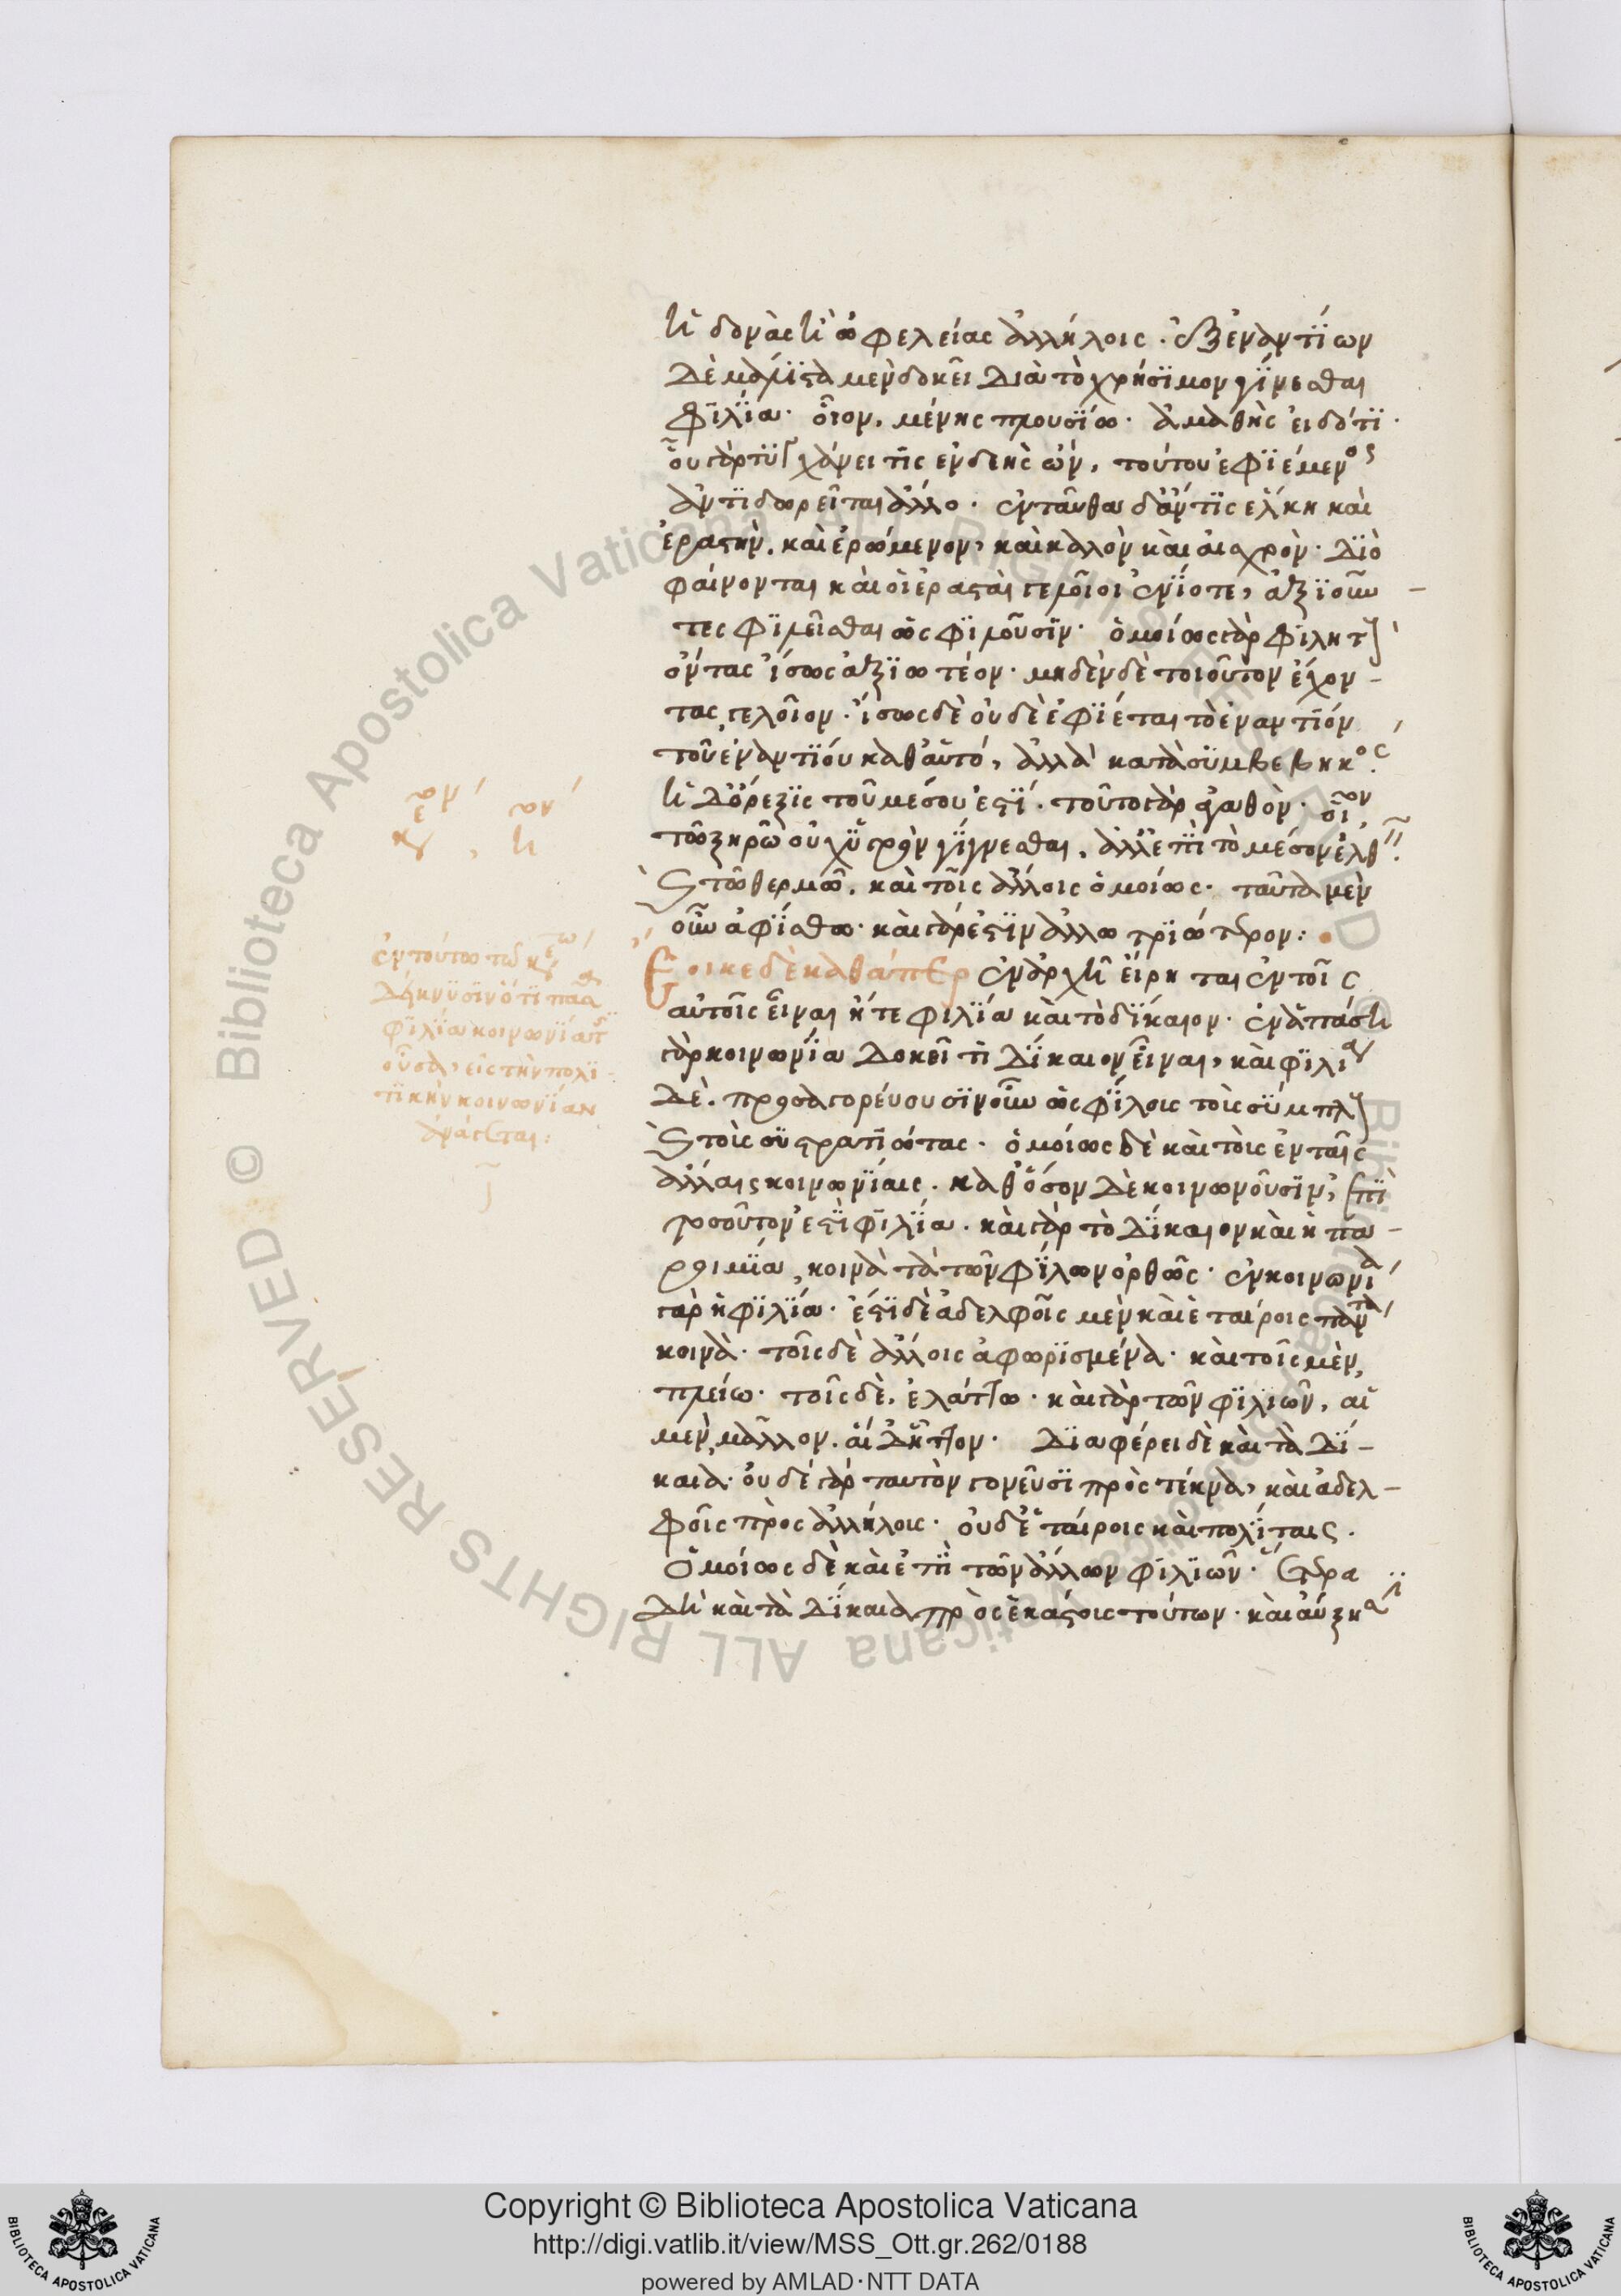 ἡδονὰς ἢ ὠφελείας ἀλλήλοις. ἐξ ἐναντΐων
δὲ μάλϊστα μὲν δοκεῖ διὰ τὸ χρήσϊμον γΐνεσθαι
φϊλΐα· οἷον, πένης πλουσΐω· ἀμαθὴς εἰδότϊ·
οὗ γὰρ τϋγχάνει τὶς ἐνδεὴς ὢν, τούτου ἐφϊέμενος
ἀντϊδωρεῖται ἄλλο. ἐνταῦθα δ' ἄν τϊς ἕλκη καὶ
ἐραστὴν, καὶ ἐρώμενον, καὶ καλὸν καὶ αἰσχρὸν· δϊὸ
φαίνονται καὶ οἱ ἐρασταὶ γελοῖοι ἐνΐοτε, ἀξϊοῦν
τες φϊλεῖσθαι ὡς φϊλοῦσϊν· ὁμοίως γὰρ φϊλητοὺς
ὄντας ἴσως ἀξϊωτέον· μηδὲν δὲ τοιοῦτον ἔχον-
τας, γελοῖον. ἴσως δὲ οὐδὲ ἐφϊέται τὸ ἐναντΐον
τοῦ ἐναντΐου καθ' αὑτό, ἀλλὰ κατὰ σϋμβεβηκός.
ἡ δ' ὄρεξϊς τοῦ μέσου ἐστΐ. τοῦτο γὰρ ἀγαθὸν· οἷον,
τῶ ξηρῶ οὐχ ὑγρὸν γΐγνεσθαι, ἀλλ' ἐπὶ τὸ μέσον ἐλθεῖν.
καὶ τῶ θερμῶ. καὶ τοῖς ἄλλοις ὁμοίως. ταῦτα μὲν
οὖν ἀφΐσθω· καὶ γάρ ἐστϊν ἀλλοτρϊώτερον:
Ἔοικε δὲ καθάπερ ἐν ἀρχῆ εἴρηται ἐν τοῖς
αὐτοῖς εἶναι ἥτε φιλΐα καὶ τὸ δΐκαιον. ἐν ἁπάση
γὰρ κοινωνΐα δοκεῖ τὶ δΐκαιον εἶναι, καὶ φϊλία
δὲ. προσαγορέυουσϊν οὖν ὡς φΐλοις τοὺς σϋμπλους
καὶ τοὺς σϋστρατιώτας. ὁμοίως δὲ καὶ τοὺς ἐν ταῖς
ἄλλαις κοινωνΐαις. καθ' ὅσον δὲ κοινωνοῦσϊν, ἐπὶ
τοσοῦτον ἐστϊ φϊλΐα. καὶ γὰρ τὸ δΐκαιον καὶ ἡ πα-
ροιμΐα, κοινὰ τὰ τῶν φΐλων ὀρθῶς. ἐν κοινωνία
γὰρ ἡ φϊλΐα. ἔστϊ δὲ ἀδελφοῖς μὲν καὶ ἑταίροις πάντα
κοινὰ. τοῖς δὲ ἄλλοις ἀφωρϊσμένα. καὶ τοῖς μὲν,
πλείω. τοῖς δὲ, ἐλάττω. καὶ γὰρ τῶν φϊλϊῶν, αἱ
μὲν, μᾶλλον. αἱ δ' ἧττον. Δϊαφέρει δὲ καὶ τὰ δΐ-
καια. οὐδὲ γὰρ ταυτὸν γονεῦσϊ πρὸς τέκνα, καὶ ἀδελ-
φοῖς πρὸς ἀλλήλοις. οὐδὲ ἑταίροις καὶ πολΐταις.
Ὁμοίως δὲ καὶ ἐπὶ τῶν ἄλλων φϊλϊῶν. ἕτερα
δὴ καὶ τὰ δΐκαια πρὸς ἑκάστοις τούτων. καὶ αὔξησϊν
ἐν τούτω τῶ κεφαλαίω
δείκνϋσϊν ὅτϊ πᾶσα
φϊλΐα κοινωνΐα τις
οὖσα, εἰς τὴν πολϊ-
τϊκὴν κοινωνΐαν
ἀνάγεται:
Copyright © Biblioteca Apostolica Vaticana
http://digi.vatlib.it/view/MSS_Ott.gr.262/0188
powered by AMLAD·NTT DATA